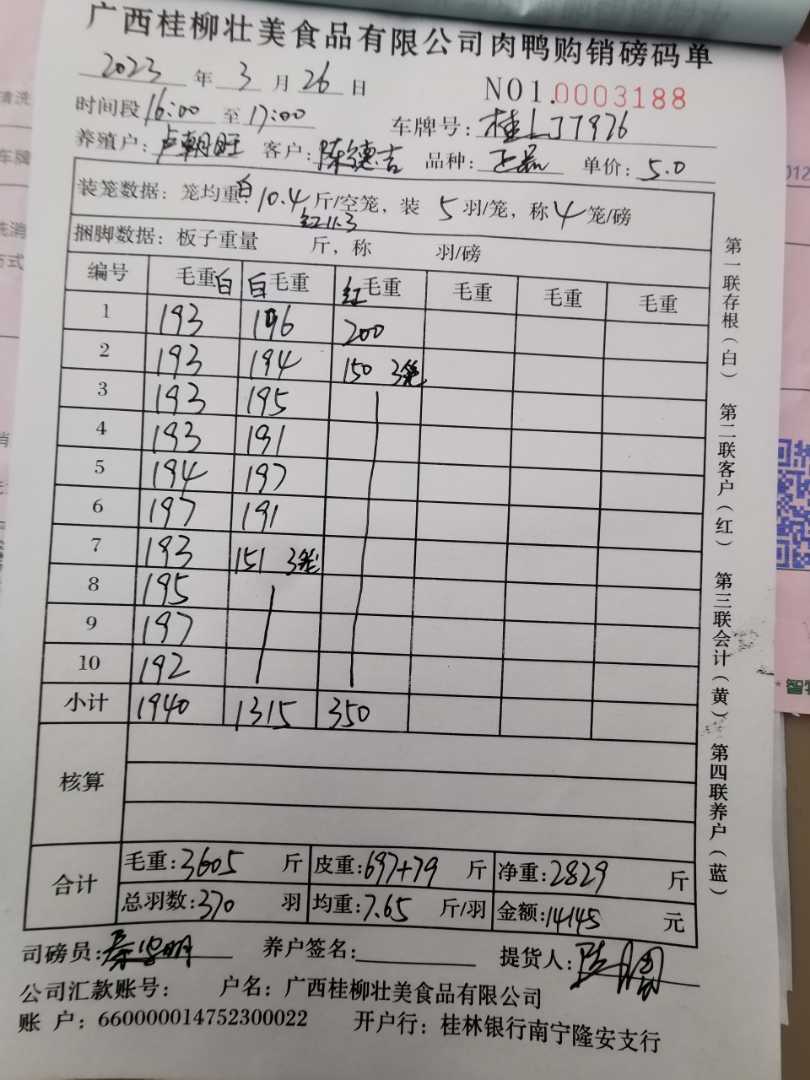 广西桂柳壮美食品有限公司肉鸭购销磅码单
2023 年 3 月 26 日 NO1.0003188
时间段 16:00 至 17:00 车牌号: 桂LJ7976
养殖户: 卢朝旺 客户: 陈德吉 品种: 正品 单价: 5.0
装笼数据: 笼均重: 白10.4 斤/空笼, 装 5 羽/笼, 称 4 笼/磅
红11.3
捆脚数据: 板子重量 斤, 称 羽/磅
编号 毛重白 白毛重 红毛重 毛重 毛重 毛重
1 193 196 200
2 193 194 150 3笼
3 193 195
4 193 191
5 194 197
6 197 191
7 193 151 3笼
8 195
9 197
10 192
小计 1940 1315 350
核算
合计
毛重: 3605 斤 皮重: 697+79 斤 净重: 2829 斤
总羽数: 370 羽 均重: 7.65 斤/羽 金额: 14145 元
司磅员: 养户签名: 提货人:
公司汇款账号: 户名: 广西桂柳壮美食品有限公司
账 户: 660000014752300022 开户行: 桂林银行南宁隆安支行
第一联存根(白) 第二联客户(红) 第三联会计(黄) 第四联养户(蓝)